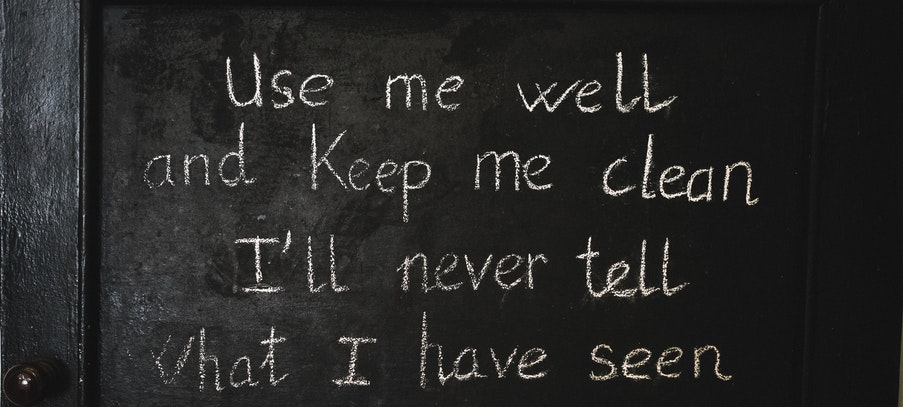 Use me well
and Keep me clean
I'll never tell
what I have seen